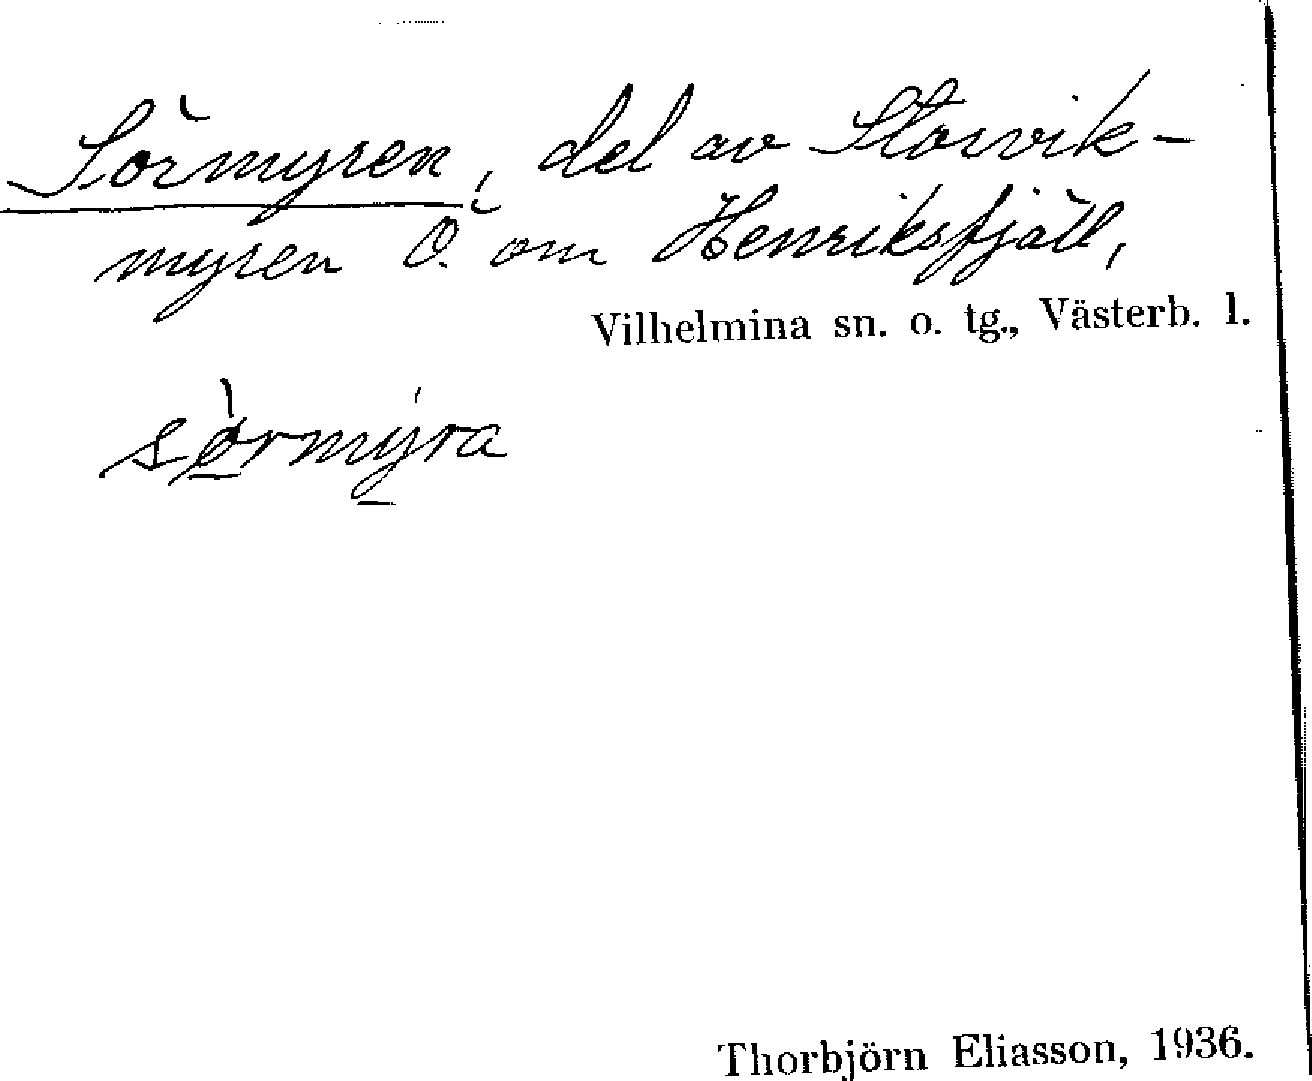 Sörmyren, del av Storvik-
myren Ö. om Henriksfjäll,
Vilhelmina sn. o. tg., Västerb. l.
sørmyra
Thorbjörn Eliasson, 1936.